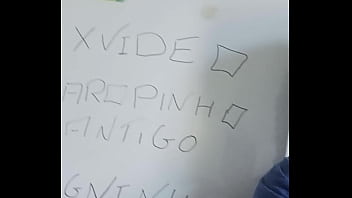 XVIDE
ARCPINH
ANTIGO